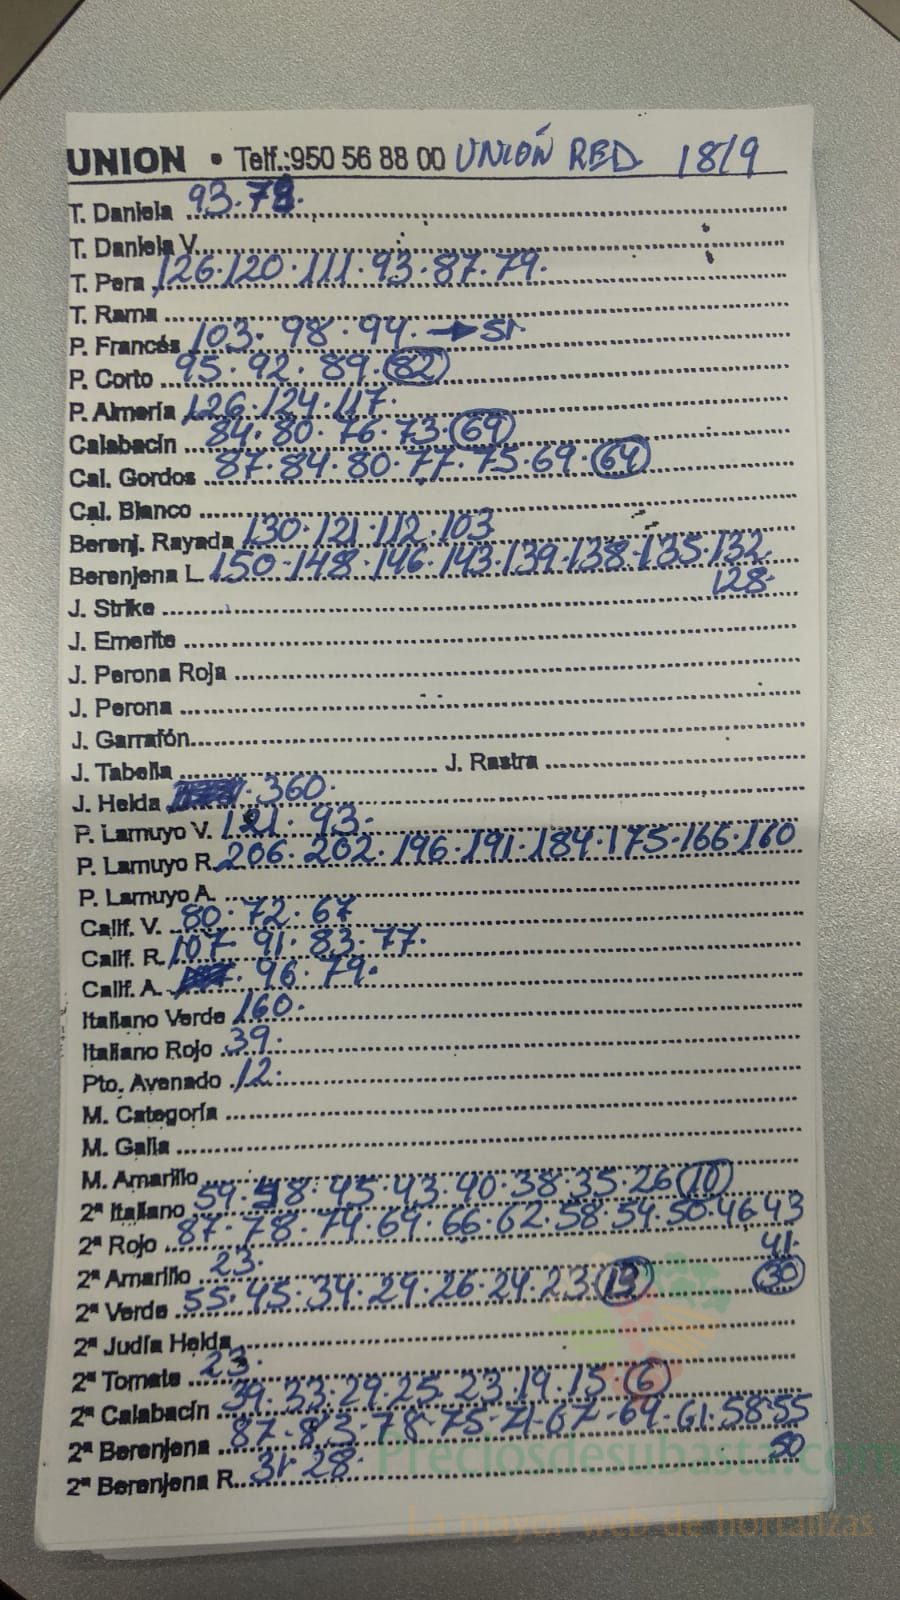 UNION • Telf.:950 56 88 00 UNIÓN RED 18/9
T. Daniela 93·78·
T. Daniela V.
T. Pera 126·120·111·93·87·79·
T. Rama
P. Francés 103·98·94·→51
P. Corto 95·92·89·82
P. Almería 126·124·117·
Calabacín 84·80·76·73·69
Cal. Gordos 87·84·80·77·75·69·64
Cal. Blanco
Berenj. Rayada 130·121·112·103
Berenjena L. 150·148·146·143·139·138·135·132
128·
J. Strike
J. Emerite
J. Perona Roja
J. Perona
J. Garrafón
J. Tabella J. Rastra
J. Helda 360·
P. Lamuyo V. 121·93·
P. Lamuyo R. 206·202·196·191·184·175·166·160
P. Lamuyo A.
Calif. V. 80·72·67
Calif. R. 107·91·83·77·
Calif. A. 96·79·
Italiano Verde 160·
Italiano Rojo 39·
Pto. Avenado 12·
M. Categoría
M. Galia
M. Amarillo
2ª Italiano 59·48·45·43·40·38·35·26 10
2ª Rojo 87·78·74·69·66·62·58·54·50·46·43
41·
2ª Amarillo 23· 30
2ª Verde 55·45·34·29·26·24·23 13
2ª Judía Helda
2ª Tomate 23·
2ª Calabacín 39·33·29·25·23·19·15·6
2ª Berenjena 87·83·78·75·71·67·64·61·58·55
50
2ª Berenjena R. 31·28·
Preciosdesubasta.com
La mayor web de hortalizas